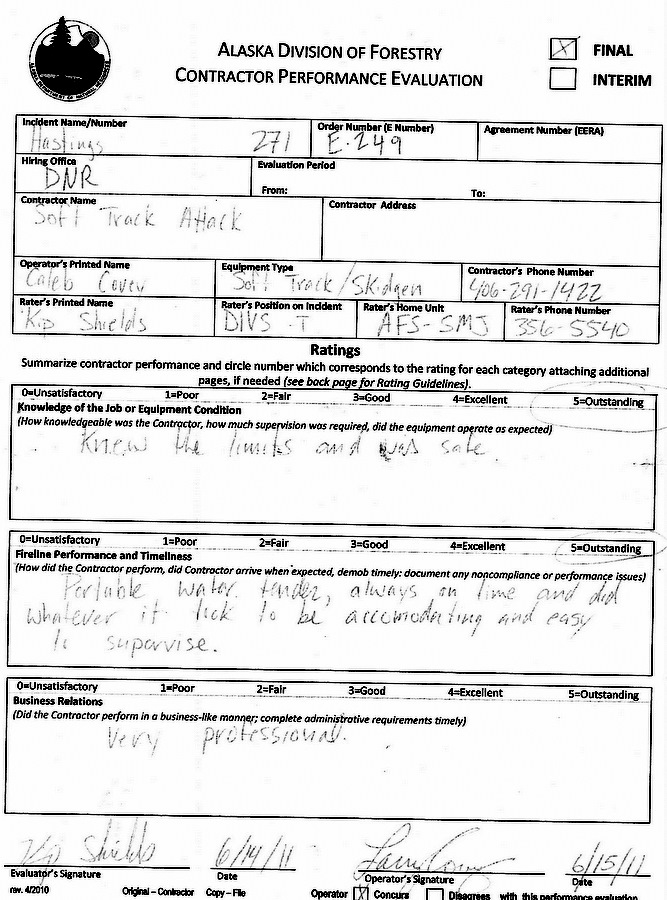 ALASKA DIVISION OF FORESTRY
CONTRACTOR PERFORMANCE EVALUATION
FINAL
INTERIM
Incident Name/Number
Hastings 271
Order Number (E Number)
E-249
Agreement Number (EERA)
Hiring Office
DNR
Evaluation Period
From: To:
Contractor Name
Soft Track Attack
Contractor Address
Operator's Printed Name
Caleb Cover
Equipment Type
Soft Track/Skidgen
Contractor's Phone Number
406-291-1422
Rater's Printed Name
Kip Shields
Rater's Position on Incident
DIVS T
Rater's Home Unit
AFS-SMJ
Rater's Phone Number
356-5540
Ratings
Summarize contractor performance and circle number which corresponds to the rating for each category attaching additional
pages, if needed (see back page for Rating Guidelines).
0=Unsatisfactory 1=Poor 2=Fair 3=Good 4=Excellent 5=Outstanding
Knowledge of the Job or Equipment Condition
(How knowledgeable was the Contractor, how much supervision was required, did the equipment operate as expected)
Knew the limits and was safe
0=Unsatisfactory 1=Poor 2=Fair 3=Good 4=Excellent 5=Outstanding
Fireline Performance and Timeliness
(How did the Contractor perform, did Contractor arrive when expected, demob timely: document any noncompliance or performance issues)
Portable water tender, always on time and did
whatever it took to be accomodating and easy
to supervise.
0=Unsatisfactory 1=Poor 2=Fair 3=Good 4=Excellent 5=Outstanding
Business Relations
(Did the Contractor perform in a business-like manner; complete administrative requirements timely)
Very professional.
Kip Shields 6/14/11 6/15/11
Evaluator's Signature Date Operator's Signature Date
rev. 4/2010 Original – Contractor Copy – File Operator X Concurs Disagrees with this performance evaluation